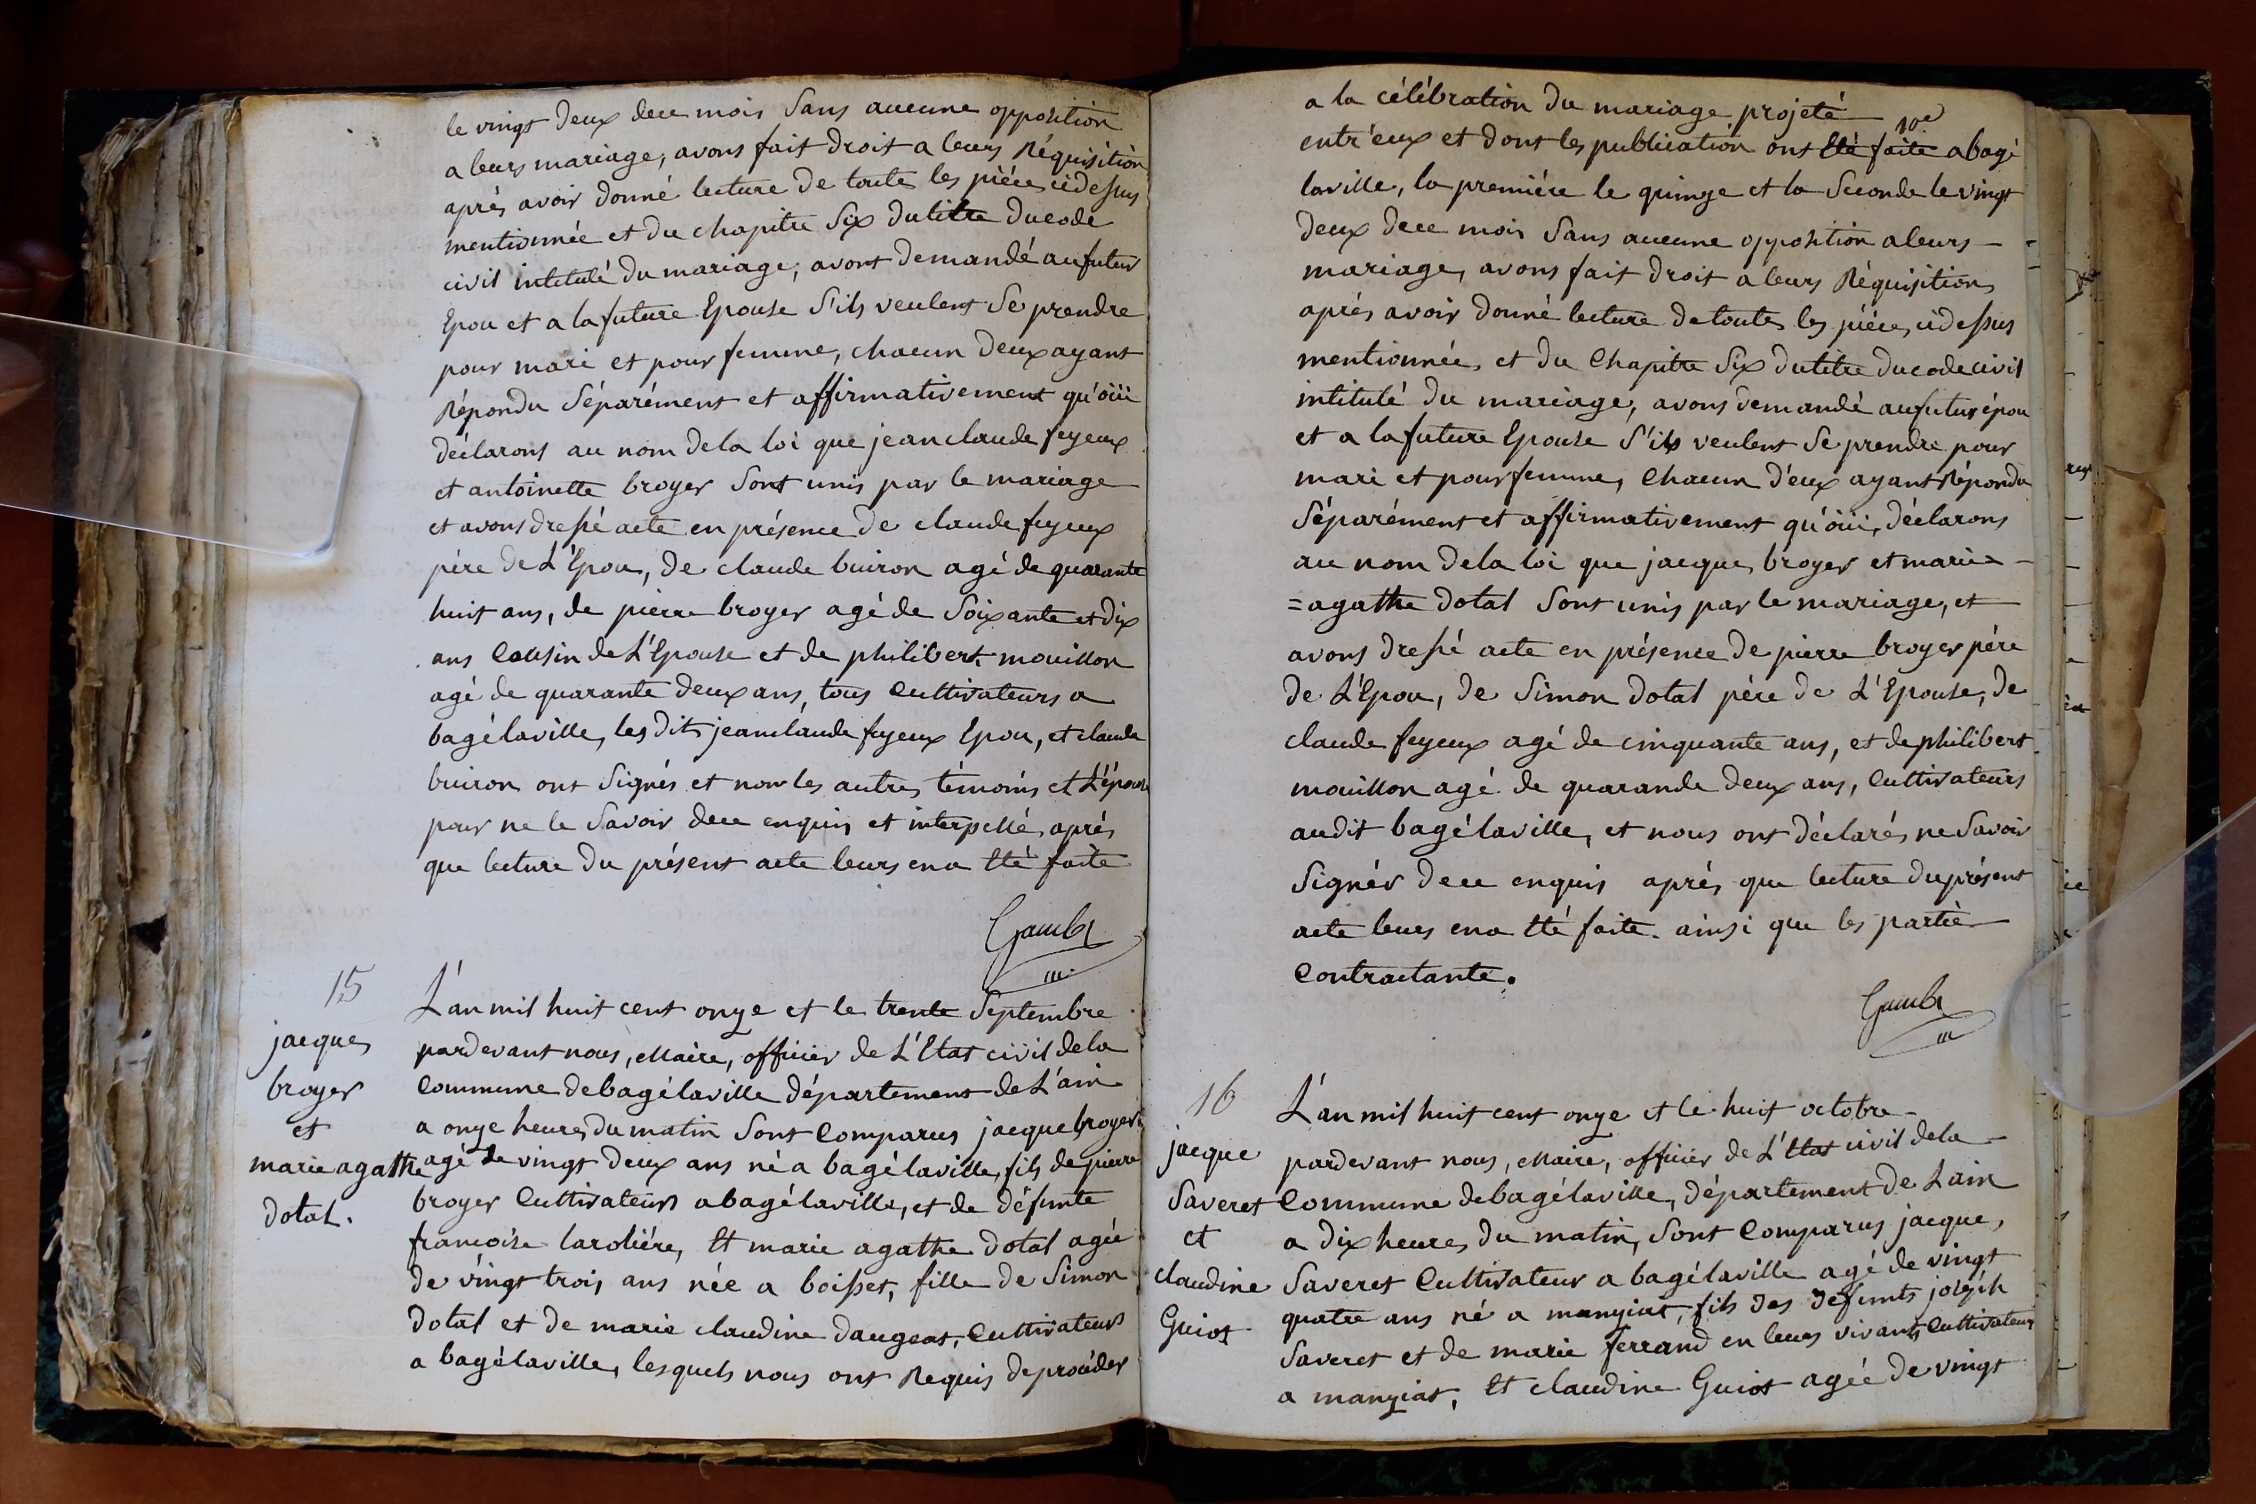 le vingt deux dece mois Sans aucune opposition
a leurs mariage, avons fait droit a leurs Réquisition
aprés avoir donné lecture de toute les piéce cidessus
mentionnée et du chapitre Six dutitre ducode
civil intitulé du mariage, avons demandé aufutur
Epou et a lafuture Epouse S'ils veulent Se prendre
pour mari et pour femme, chacun deux ayant
Répondu Séparément et affirmativement qu'oüi
déclarons au nom dela loi que jeanclaude feyeux
et antoinette broyer Sont unis par le mariage
et avons dressé acte en présence de claude feyeux
pére de L'Epou, de claude buiron agé de quarante
huit ans, de pierre broyer agé de Soixante et dix
ans Cousin de L'Epouse et de philibert mouillon
agé de quarante deux ans, tous Cultivateurs a
bagélaville, les dits jeanclaude feyeux Epou, et claude
buiron ont Signés et non les autres témoins et L'épouse
pour ne le Savoir dece enquis et interpellé, aprés
que lecture du présent acte leurs ena Eté faite
Gambr
15
jacques
broyer
et
marie agathe
dotal.
L'an mil huit cent onze et le trente Septembre
pardevant nous, Maire, officier de L'Etat civil dela
Commune debagélaville département de L'ain
a onze heures du matin Sont Comparus jacque broyer
agé de vingt deux ans né a bagélaville, fils de pierre
broyer Cultivateurs abagélaville, et de défunte
francoise laroliére, Et marie agathe dotal agée
de vingt trois ans née a boisset, fille de Simon
dotal et de marie claudine daugeat, Cultivateurs
a bagélaville, lesquels nous ont Requis deprocéder
a la célébration du mariage projeté
entr'eux et dont les publication ont Eté faite abagé
laville, la premiére le quinze et la Seconde le vingt
deux dece mois Sans aucune opposition aleurs
mariage, avons fait droit a leurs Réquisition
aprés avoir donné lecture detoute les piéce cidessus
mentionnée et du Chapitre Six dutitre ducodecivil
intitulé du mariage, avons demandé aufutur épou
et a lafuture Epouse S'ils veulent Se prendre pour
mari et pour femme, Chacun d'eux ayant Répondu
Séparément et affirmativement qu'oüi, déclarons
au nom dela loi que jacque broyer et marie=
=agathe dotal Sont unis par le mariage, et
avons dressé acte en présence de pierre broyer pére
de L'Epou, de Simon dotal pére de L'Epouse, de
claude feyeux agé de cinquante ans, et de philibert
mouillon agé de quarande deux ans, Cultivateurs
audit bagélaville, et nous ont déclarés ne Savoir
Signér dece enquis aprés que lecture duprésent
acte leurs ena Eté faite. ainsi que les partie
Contractante.
Gambr
16
jacque
Saveret
et
claudine
Guiot
L'an mil huit cent onze et le huit octobre
pardevant nous, Maire, officier de L'Etat civil dela
Commune debagélaville, département de Lain
a dix heures du matin, Sont Comparus jacque,
Saveret Cultivateur a bagélaville agé de vingt
quatre ans né a manziat, fils des défunts joseph
Saveret et de marie ferrand en leurs vivants Cultivateurs
a manziat, Et claudine Guiot agée de vingt